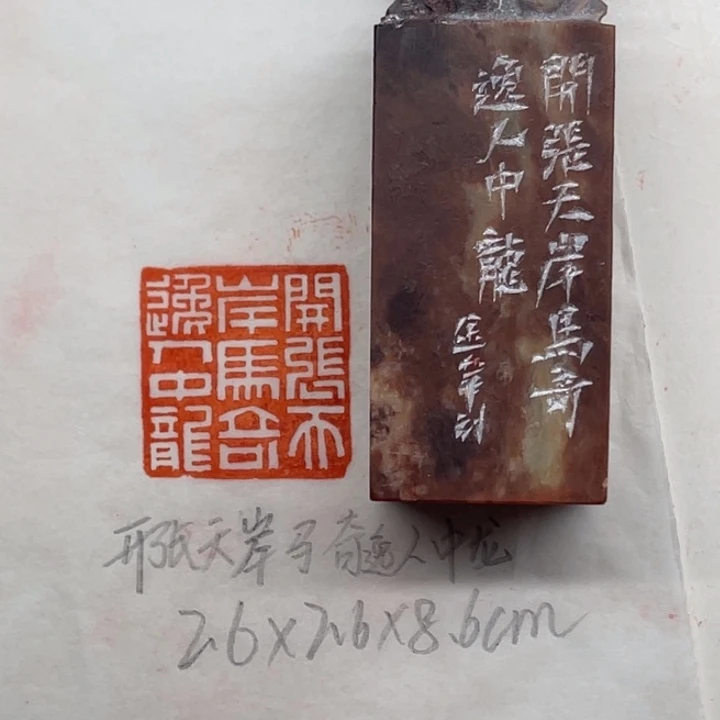 開張天岸馬奇
逸人中龍
開張天
岸馬奇
逸人中龍
开张天岸马奇逸人中龙
2.6×2.6×8.6cm